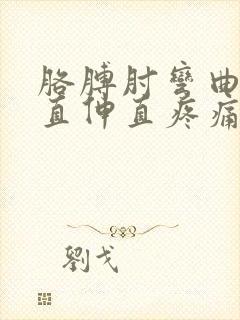 胳膊肘弯曲
直伸直疼痛
劉戈